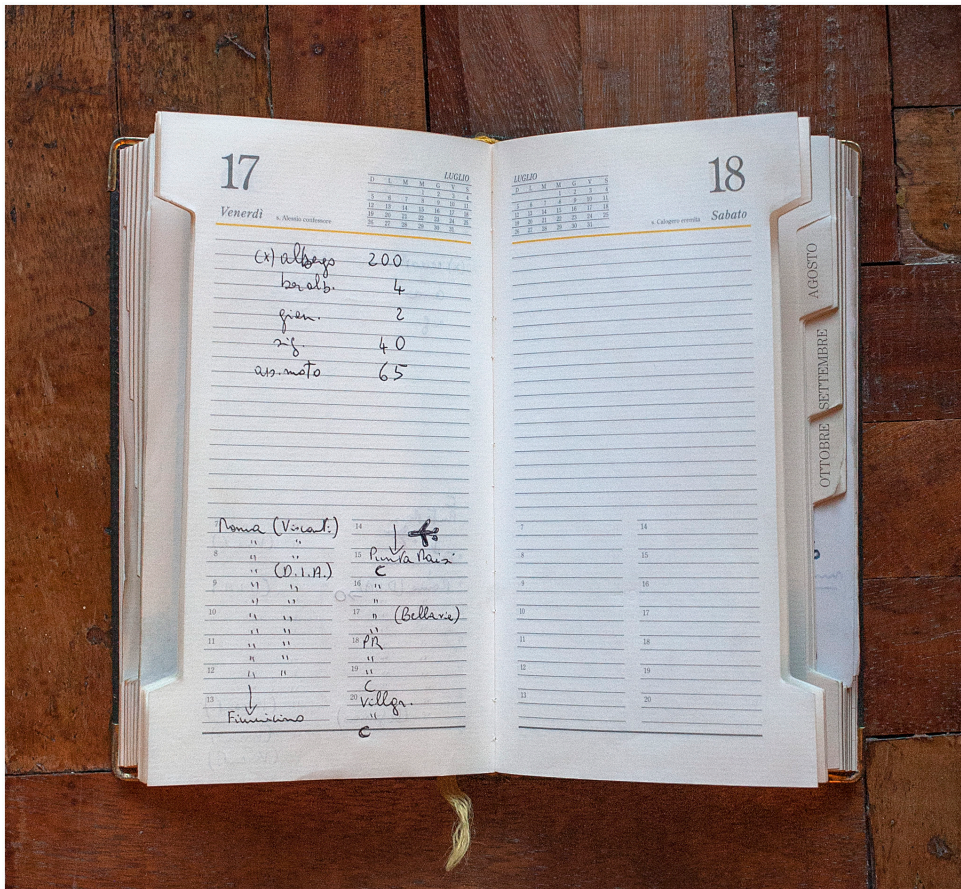 17
Venerdì
s. Alessio confessore
LUGLIO
D L M M G V S
1 2 3 4
5 6 7 8 9 10 11
12 13 14 15 16 17 18
19 20 21 22 23 24 25
26 27 28 29 30 31
(x) albergo 200
bar alb. 4
gior. 2
sig. 40
ass. moto 65
7 Roma (Visconti)
" "
8 " "
" (D.I.A.)
9 " "
" "
10 " "
" "
11 " "
" "
12 " "
13
Fiumicino
14
15 Punta Raisi
C
16 "
"
17 " (Bellavia)
"
18 PR
"
19 "
C
20 Villgr.
"
C
LUGLIO
D L M M G V S
1 2 3 4
5 6 7 8 9 10 11
12 13 14 15 16 17 18
19 20 21 22 23 24 25
26 27 28 29 30 31
18
s. Calogero eremita
Sabato
7
8
9
10
11
12
11
14
15
16
17
18
19
20
AGOSTO
SETTEMBRE
OTTOBRE